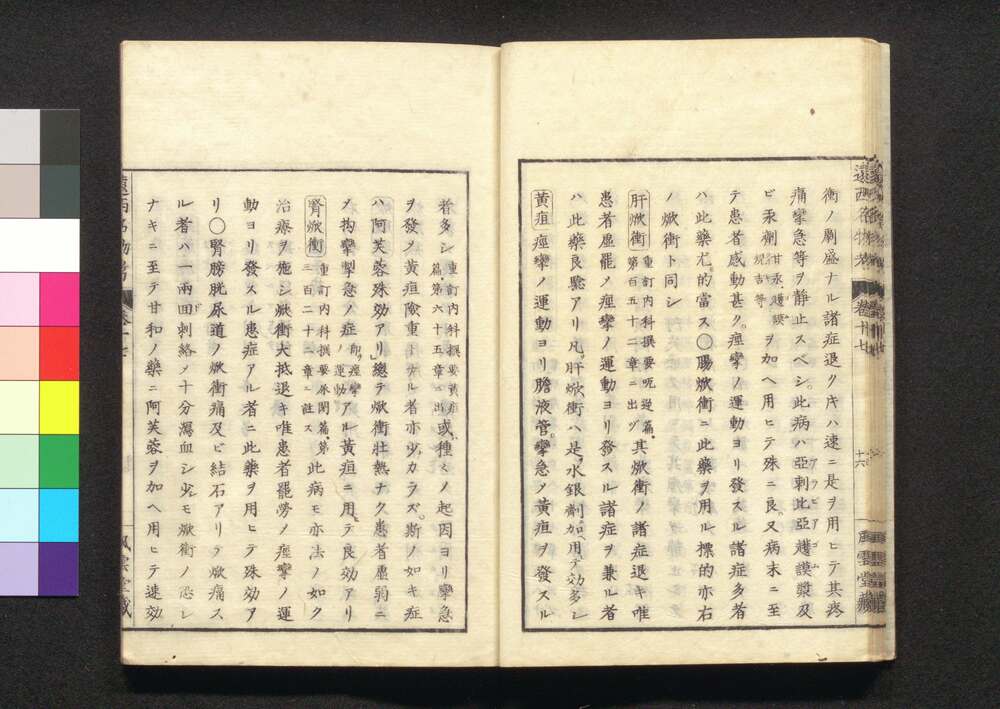 衝ノ劇盛ナル諸症退クキハ速ニ是ヲ用ヒテ其疼
痛攣急等ヲ静止スベシ。此病ハ亞剌比亞護謨漿及
アラビアゴム
ビ汞劑
甘汞、護謨
煆吉等
ヲ加ヘ用ヒテ殊ニ良。又病末ニ至
テ患者感動甚ク。痙攣ノ運動ヨリ發スル諸症多者
ハ此藥尤的當ス〇腸焮衝ニ此藥ヲ用ル標的亦右
ノ焮衝ト同シ
肝焮衝
重訂内科撰要呃逆篇。
第百五十二章ニ出ヅ
其焮衝ノ諸症退キ唯
患者虚罷ノ痙攣ノ運動ヨリ發スル諸症ヲ兼ル者
ハ此藥良驗アリ凡肝焮衝ハ是ニ水銀劑加用テ効多シ
黄疸
痙攣ノ運動ヨリ膽液管。攣急ノ黄疸ヲ發スル
者多シ
重訂内科撰要黄疸
篇。第六十五章ニ出
或種々ノ起因ヨリ攣急
ヲ發ノ黄疸險重ナル者亦少カラズ。斯ノ如キ症
ハ阿芙蓉殊効アリ」總テ焮衝壮熱ナク患者虚弱ニ
ノ拘攣掣急ノ症
即痙攣
ノ運動
アル黄疸ニ用テ良効アリ
腎焮衝
重訂内科撰要尿閉篇。第
三百二十二章ニ註ス
此病モ亦法ノ如ク
治療ヲ施シ焮衝大抵退キ唯患者罷勞ノ痙攣ノ運
動ヨリ發スル患症アル者ニ此藥ヲ用ヒテ殊効ア
リ〇腎膀胱尿道ノ焮衝痛及ビ結石アリテ焮痛ス
ル者ハ一兩回刺絡ノ十分瀉血シ少モ焮衝ノ恐レ
ナキニ至テ甘和ノ藥ニ阿芙蓉ヲ加ヘ用ヒテ速効
卷十七
十六
風雲堂藏